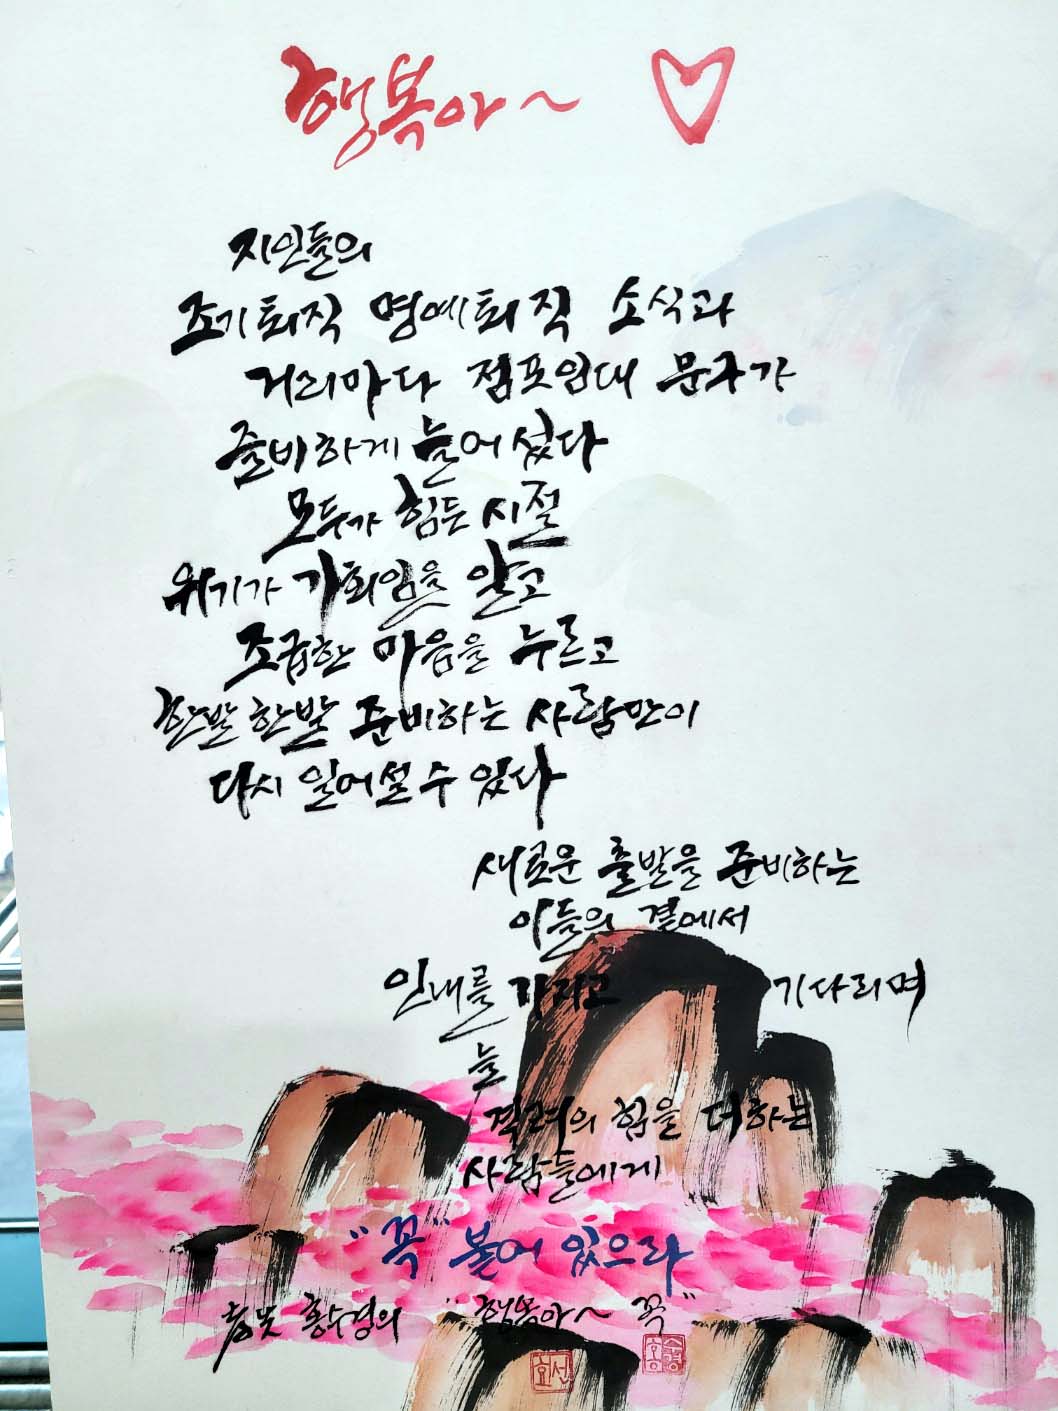 행복아~ ♡
지인들의
조기퇴직 명예퇴직 소식과
거리마다 점포임대 문구가
즐비하게 늘어섰다
모두가 힘든 시절
위기가 기회임을 알고
조급한 마음을 누르고
한발 한발 준비하는 사람만이
다시 일어설 수 있다
새로운 출발을 준비하는
이들의 곁에서
인내를 가지고 기다리며
늘
격려의 힘을 더하는
사람들에게
"꼭" 붙어 있으라
홍수경의 "행복아~ 꼭"